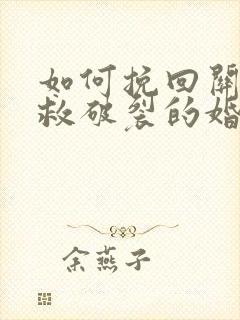 如何挽回關
救破裂的婚
余燕子